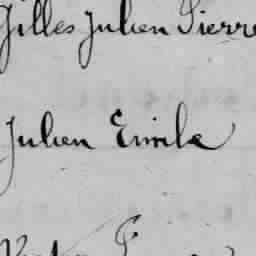 Gilles Julien Pierre
Julien Emile